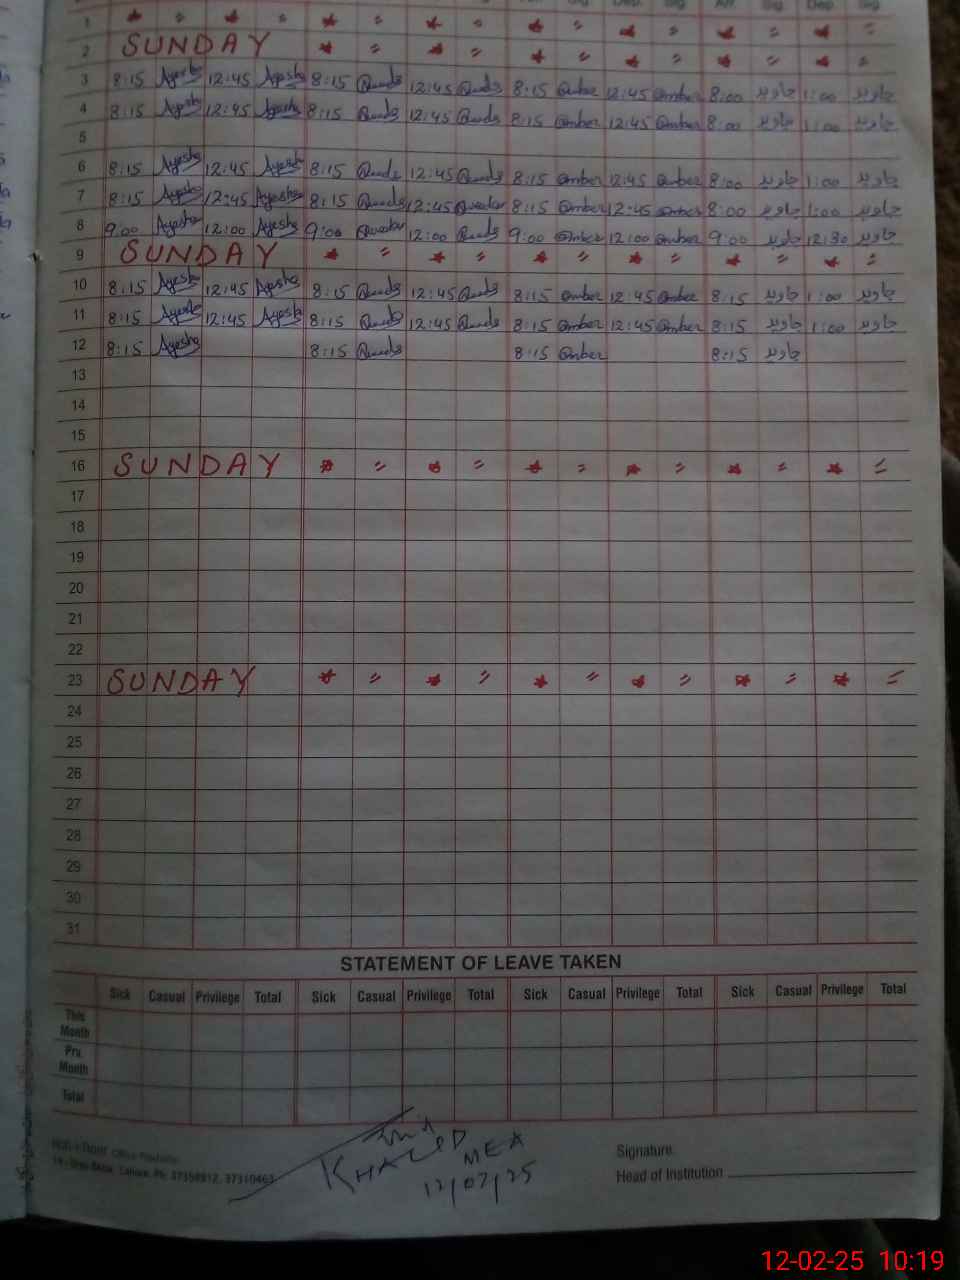 Arr. Sig. Dep. Sig.
1 * " * " * " * " * " * " * " * "
2 SUNDAY * " * " * " * " * " * "
3 8:15 Ayesha 12:45 Ayesha 8:15 Quads 12:45 Quads 8:15 Omber 12:45 Omber 8:00 جاوید 1:00 جاوید
4 8:15 Ayesha 12:45 Ayesha 8:15 Quads 12:45 Quads 8:15 Omber 12:45 Omber 8:00 جاوید 1:00 جاوید
5
6 8:15 Ayesha 12:45 Ayesha 8:15 Quads 12:45 Quads 8:15 Omber 12:45 Omber 8:00 جاوید 1:00 جاوید
7 8:15 Ayesha 12:45 Ayesha 8:15 Quads 12:45 8:15 Omber 12:45 Omber 8:00 جاوید 1:00 جاوید
8 9:00 Ayesha 12:00 Ayesha 9:00 12:00 Quads 9:00 Omber 12:00 Omber 9:00 جاوید 12:30 جاوید
9 SUNDAY * " * " * " * " * " * "
10 8:15 Ayesha 12:45 Ayesha 8:15 Quads 12:45 Quads 8:15 Omber 12:45 Omber 8:15 جاوید 1:00 جاوید
11 8:15 Ayesha 12:45 Ayesha 8:15 Quads 12:45 Quads 8:15 Omber 12:45 Omber 8:15 جاوید 1:00 جاوید
12 8:15 Ayesha 8:15 Quads 8:15 Omber 8:15 جاوید
13
14
15
16 SUNDAY * " * " * " * " * " * "
17
18
19
20
21
22
23 SUNDAY * " * " * " * " * " * "
24
25
26
27
28
29
30
31
STATEMENT OF LEAVE TAKEN
Sick Casual Privilege Total Sick Casual Privilege Total Sick Casual Privilege Total Sick Casual Privilege Total
This Month
Prv. Month
Total
KHALID MEA
12/02/25
Signature:
Head of Institution
Lahore. Ph: 37358912, 37310463
12-02-25 10:19